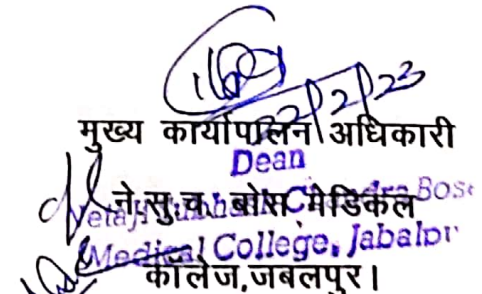 22/2/23
मुख्य कार्यापालन अधिकारी
Dean
ने.सु.च. बोस मेडिकल
Netaji Subhash Chandra Bose
Medical College, Jabalpur
कॉलेज,जबलपुर।